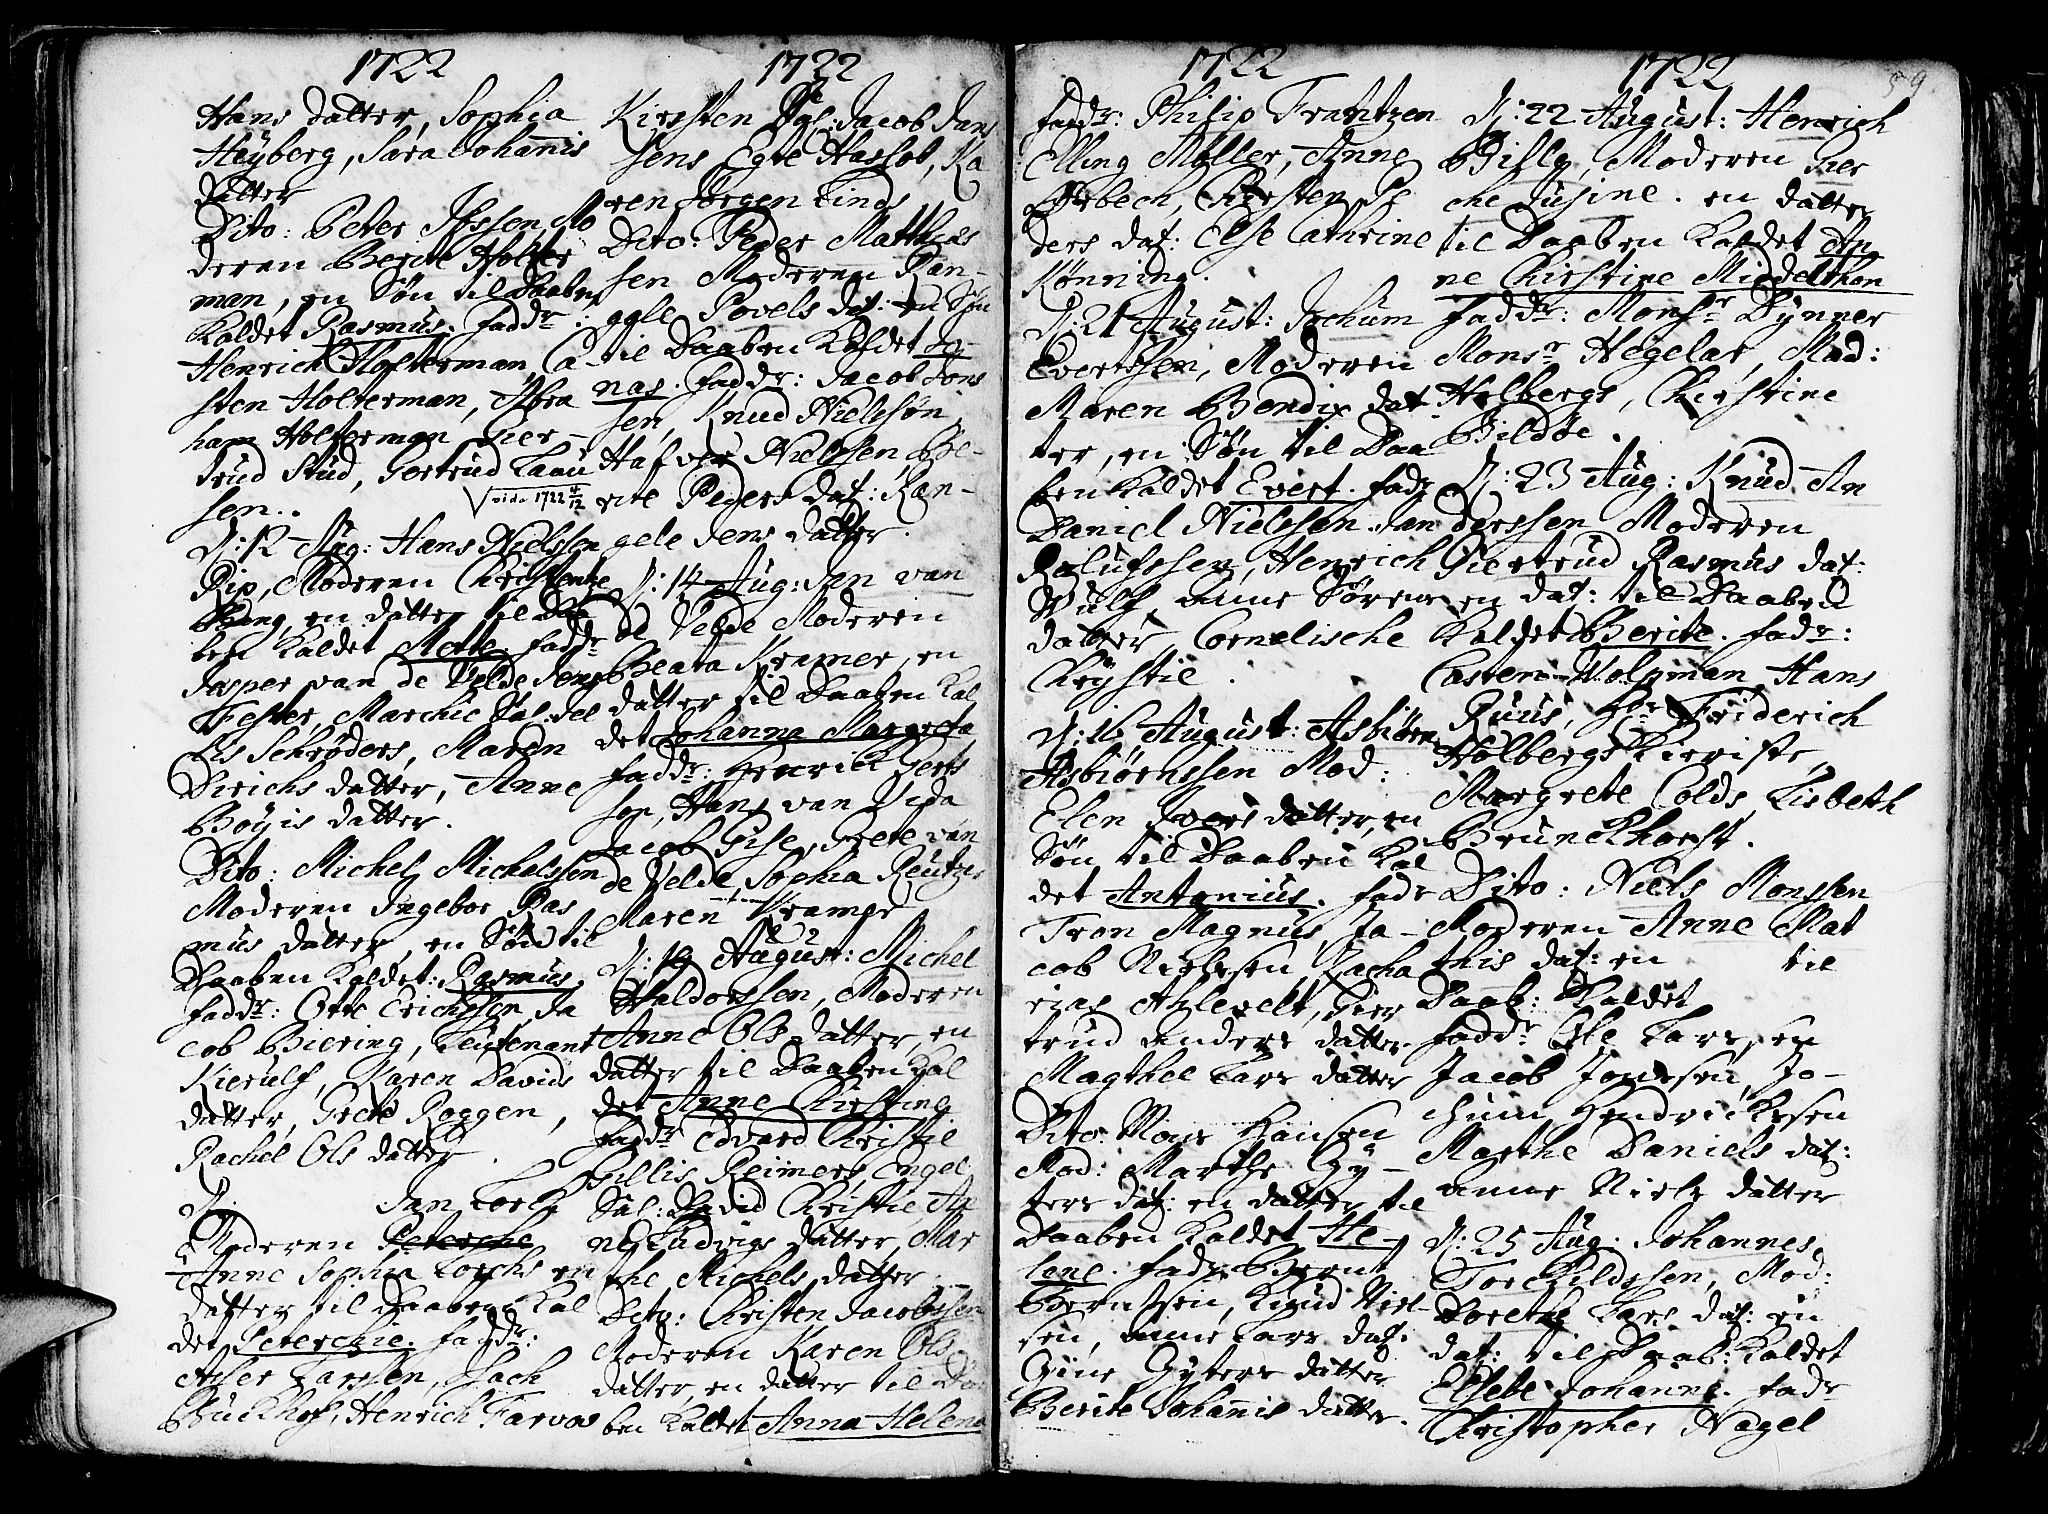 1722
Hans datter, Sophia
Heÿberg, Sara Johannis
datter
Dito: Peter Ibssen, Mo
deren Berite Holter
man, en Søn til Daaben
Kaldet Rasmus. fadd:r:
Henrich Holterman, Ca-
sten Holterman, Abra
ham Holterman, Gier-
trud Stud, Gertrud Laur
sen.
vide 1722 4/12
D: 12 Aug: Hans Nielssen
Rip, Moderen Christentze
Bang, en datter til Daa
ben Kaldet Mette. fadd:r
Jasper van de Velde, Jens
Fester, Marchic Sal: del
Els Schrøders, Maren
Dirichs datter, Anne
Böÿis datter.
Dito: Michel Michelssen
Moderen Ingebor Ras
mus datter, en Søn til
Daaben Kaldet: Rasmus.
fadd:r: Otte Erichssen, Ja
cob Biering, Leutenant
Kierulf, Karen Davids
datter, Grete Roggen,
Rachel Ols datter.
D: Jan Lorck
Moderen Peterche
Anne Sophia Lorchs en
datter til Daaben Kal
det Peterchie. fadd:r:
Atler Larssen, Isach
Buckhof, Henrich Farvow
1722
Kirsten Sl: Jacob Jans
sens, Egte Hassob, Ka
ren Jørgen Linds
Dito: Peder Matthias
sen Moderen Ran-
ggle Povels dat: en Søn
til Daaben Kaldet Jo-
nas. fadd:r: Jacob Jons
sen, Knud Nielssøn
Hafver Nielssen, Be-
rite Peders dat: Ran-
gele Jens datter.
D: 14 Aug: Jan van
de Velde Moderen
Beata Kramer, en
datter til Daaben Kal
det Johanna Margreta
fadd:r: Henrich Gerts
sen, Hans van Vida
Jacob Gise, Grete van
de Velde, Sophia Reutz
Maren Kramer
D: 19 August: Michel
Haldorssen, Moderen
Anne Ols datter, en
datter til Daaben Kal
det Anne Christine
fadd:r Edvard Christie
Gillis Reimers, Engel
Sal: David Christie, An
ne Ludvigs datter, Mar
the Michels datter.
Dito: Christen Jacobssen
Moderen Karen Ols
datter, en datter til Daa
ben Kaldet Anna Helena
1722
fadd:r: Philip Frantzen
Elling Møller, Anne
Ørbech, Kirsten Pe
ders dat: Else Cathrine
Kønning.
D: 21 August: Jochum
Evertssen, Moderen
Maren Bendix dat
ter, en Søn til Daa
ben Kaldet Evert. fadr
Daniel Nielssen, Jan
Rolufssen, Henrich
Wulf, anne Sørens
datter, Cornelische
Chrÿstie.
D: 16 August: Asbiørn
Asbiørnssen Mod:
Elen Ivers datter, en
Søn til Daaben Kal
det Antonius. fadr
Tron Magnus, Ja-
cob Nielssen, Zacha
rias Ahlevelt, Gier
trud Anders datter.
Magthel Lars datter
Dito: Mons Hansen
Mod: Marthe Gÿ-
ters dat: en datter til
Daaben Kaldet He-
lene. fadr: Bernt
Berntsen, Knud Niel-
sen, anne Lars dat:
Gine Gÿters datter
Berite Johannis datter.
1722
59
D: 22 August: Henrich
Billy, Moderen Gier
che Jusine. en datter
til Daaben Kaldet An
ne Christine Middelthon
fadd:r: Mons:r Dÿnner
Mons:r Hegelar, Mad:
Holbergs, Christine
Bildøe.
D: 23 Aug: Knud An
derssen Moderen
Giertrud Rasmus dat:
en dat: til Daaben
Kaldet Berite. fadr:
Casten Wolpman, Hans
Ruus, H:r Friderich
Holbergs Kieriste,
Margrete Colds, Lisbeth
Brunckhorst.
Dito: Niels Monssen
Moderen Anne Mat
this dat: en til
Daab: Kaldet
fadd:r Ole Larssen
Jacob Jonessen, Jo-
chum Hendrickesen
Marthe Daniels dat:
anne Niels datter
D: 25 Aug: Johannes
Torckildssen, Mod:
Dorethe Lars dat: en
dat: til Daab: Kaldet
Elsebe Johanna. fadr
Christopher Nagel